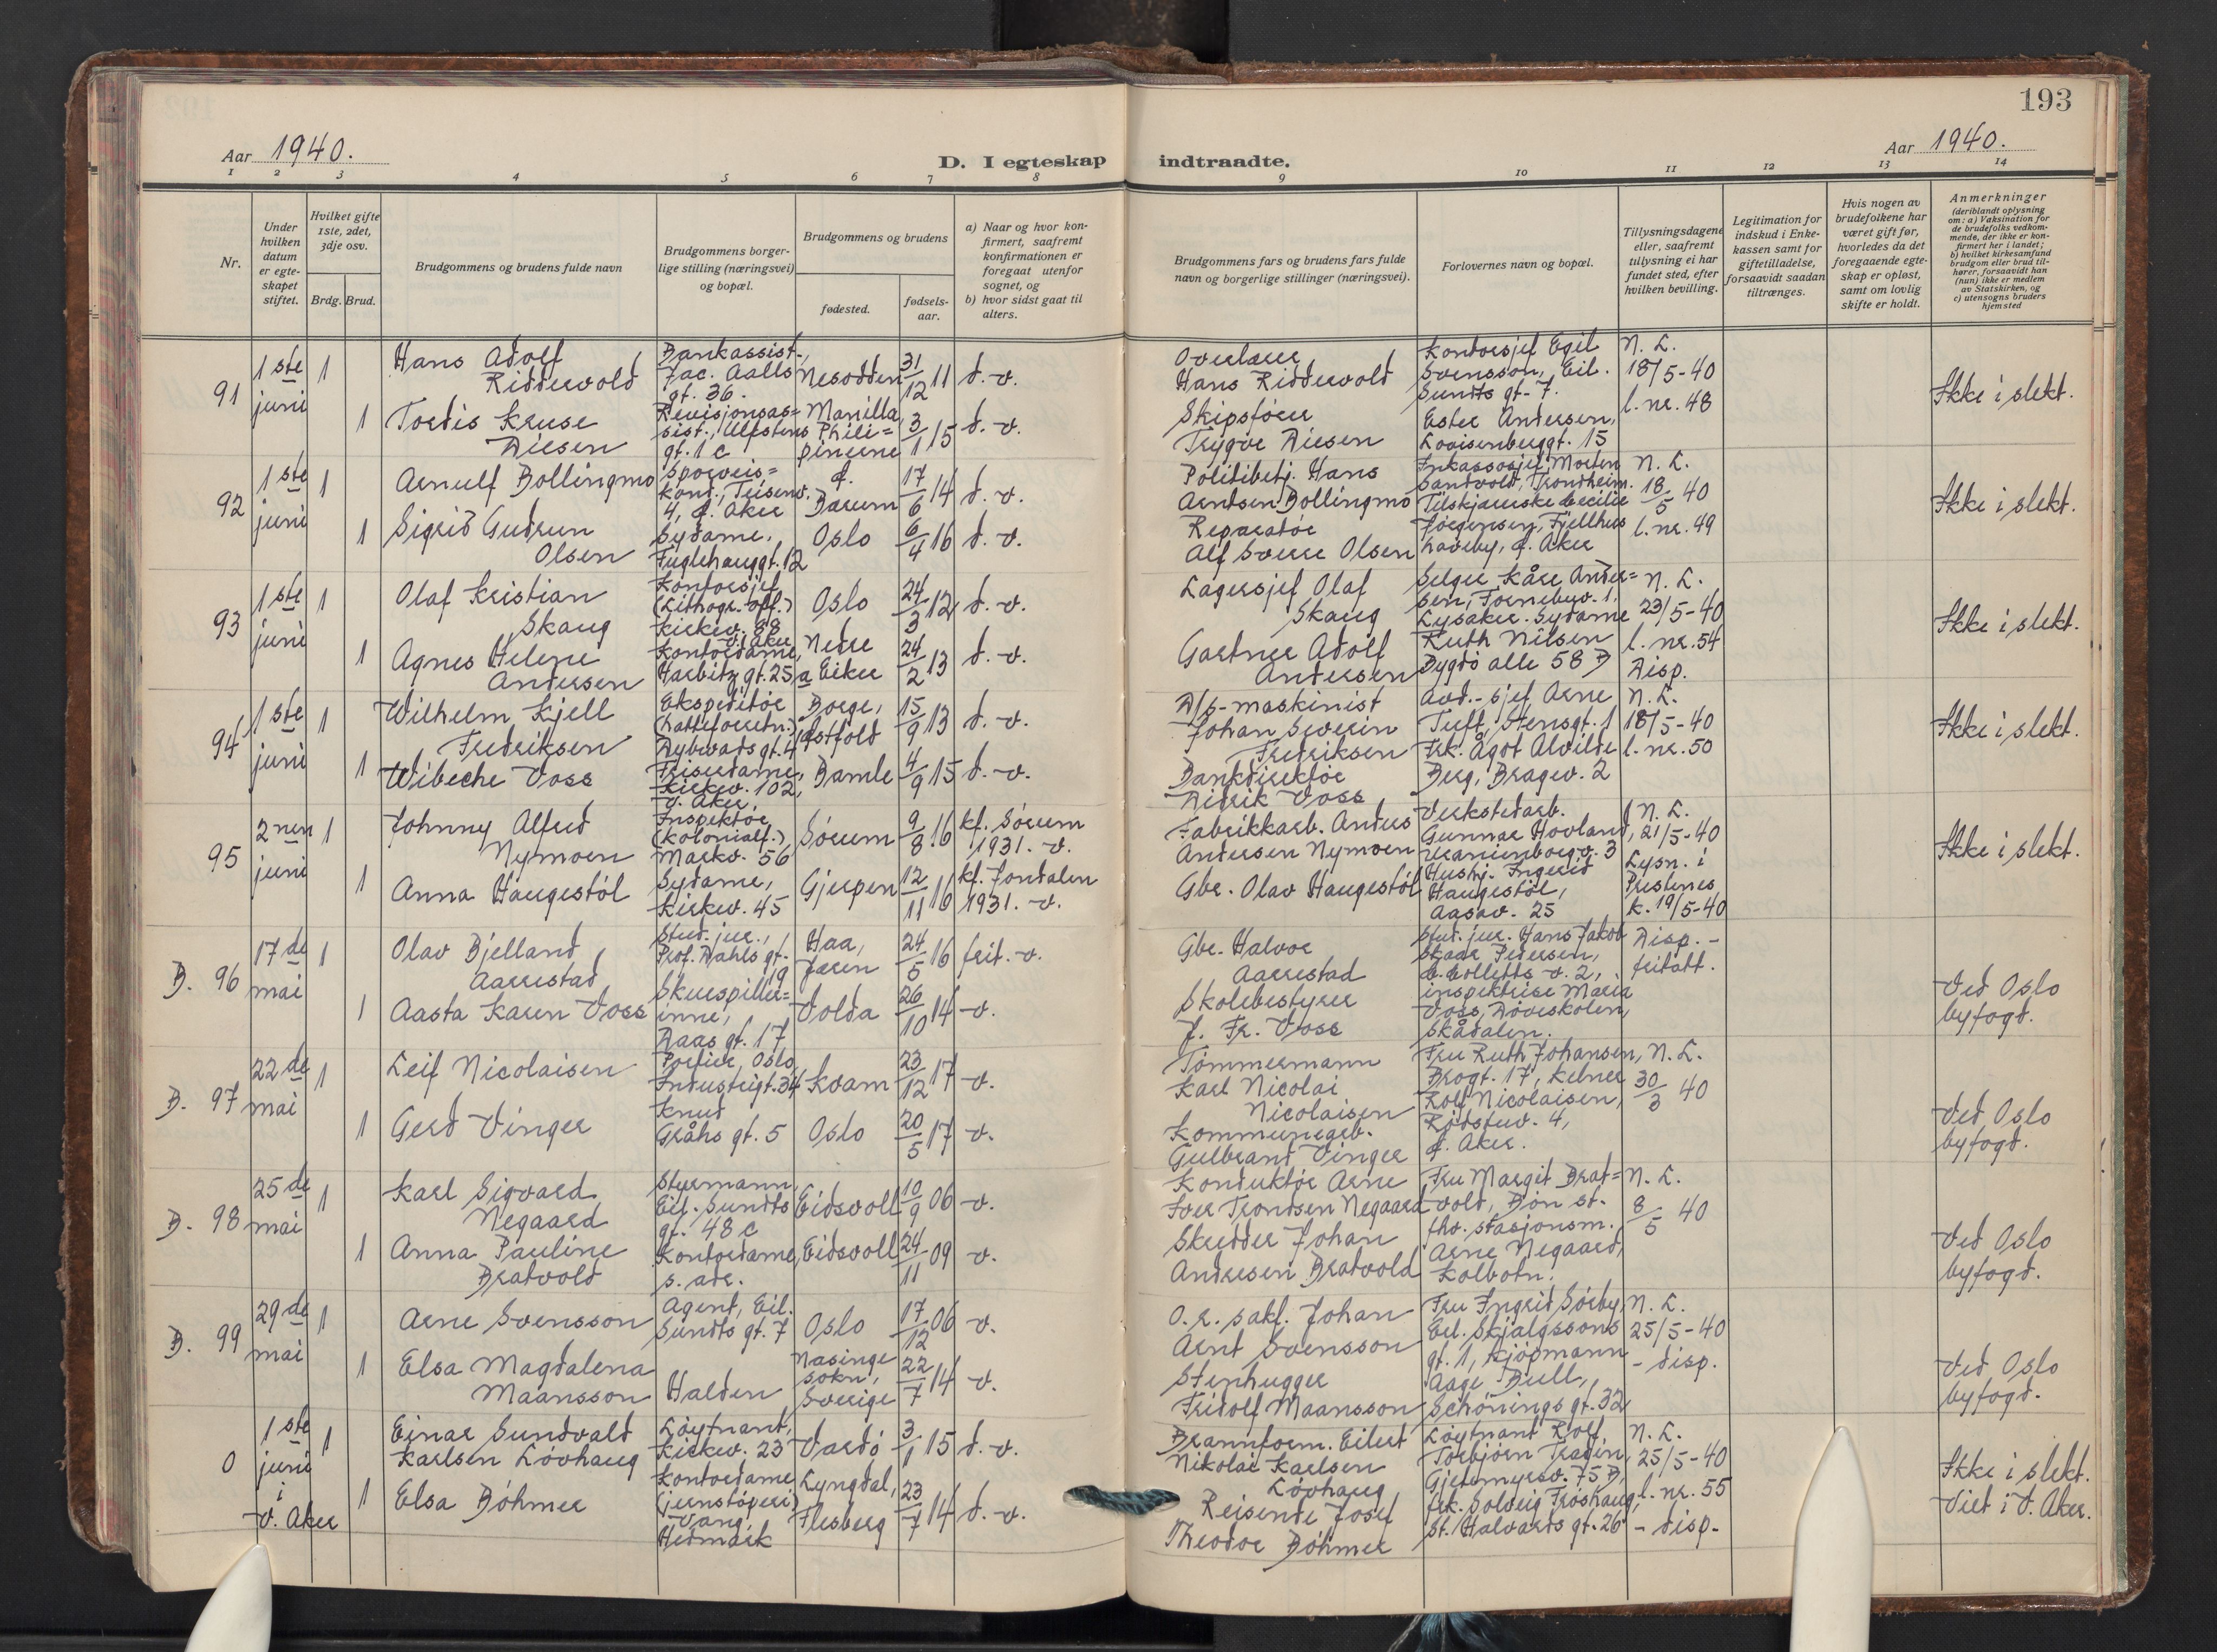 193
Aar 1940.
D. I egteskap indtraadte.
Aar 1940.
1 2 3 4 5 6 7 8 9 10 11 12 13 14
Nr.
Under hvilken datum er egteskapet stiftet.
Hvilket gifte 1ste, 2det, 3dje osv.
Brdg. Brud.
Brudgommens og brudens fulde navn
Brudgommens borgerlige stilling (næringsvei) og bopæl.
Brudgommens og brudens
fødested.
fødselsaar.
a) Naar og hvor konfirmert, saafremt konfirmationen er foregaat utenfor sognet, og
b) hvor sidst gaat til alters.
Brudgommens fars og brudens fars fulde navn og borgerlige stillinger (næringsvei).
Forlovernes navn og bopæl.
Tillysningsdagene eller, saafremt tillysning ei har fundet sted, efter hvilken bevilling.
Legitimation for indskud i Enkekassen samt for giftetilladelse, forsaavidt saadan tiltrænges.
Hvis nogen av brudefolkene har været gift før, hvorledes da det foregaaende egteskap er opløst, samt om lovlig skifte er holdt.
Anmerkninger
(deriblandt oplysning om: a) Vaksination for de brudefolks vedkommende, der ikke er konfirmert her i landet;
b) hvilket kirkesamfund brudgom eller brud tilhører, forsaavidt han (hun) ikke er medlem av Statskirken, og
c) utensogns bruders hjemsted
91
1ste juni
1
Hans Adolf Riddervold
Bankassist., Jac. Aalls gt. 36.
Nesodden
31/12 11
d. v.
Overlærer Hans Riddervold
Kontorsjef Egil Svensson, Eil. Sundts gt. 7.
N. L. 18/5-40 l. nr. 48
Ikke i slekt.
1
Tordis Kruse Riesen
Revisjonsassist., Ulfstens gt. 1 c
Manilla, Philippinerne
3/1 15
d. v.
Skipsfører Trygve Riesen
Ester Andersen, Lovisenberggt. 15
92
1ste juni
1
Arnulf Bollingmo
Sporveiskond., Teisenv. 4, Ø. Aker
Ø. Bærum
17/6 14
d. v.
Politibetj. Hans Arntsen Bollingmo
Inkassosjef Morten Sandvold, Trondheim.
N. L. 18/5 40 l. nr. 49
Ikke i slekt.
1
Sigrid Gudrun Olsen
Sydame, Fuglehauggt. 12
Oslo
6/4 16
d. v.
Reparatør Alf Sverre Olsen
Tilskjærerske Cecilie Jørgensen, Fjellhus haveby, Ø. Aker
93
1ste juni
1
Olaf Kristian Skaug
Kontorsjef (Lithogr. off.) Kirkev. 88 V. Aker
Oslo
24/3 12
d. v.
Lagersjef Olaf Skaug
Selger Kåre Andersen, Fornebuv. 1. Lysaker.
N. L. 23/5-40 l. nr. 54 Disp.
Ikke i slekt.
1
Agnes Helene Andersen
Kontordame, Harbitz gt. 25 a
Nedre Eiker
24/2 13
d. v.
Gartner Adolf Andersen
Sydame Ruth Nilsen Bygdø alle 58 B
94
1ste juni
1
Wilhelm Kjell Fredriksen
Ekspeditør (hatteforretn.) Nybrodts gt. 4
Borge, Østfold
15/9 13
d. v.
D/S-maskinist Johan Severin Fredriksen
Avd.-sjef Arne Tuft, Stensgt. 1
N. L. 18/5-40 l. nr. 50
Ikke i slekt.
1
Wibeche Voss
Friserdame, Kirkev. 102, V. Aker
Bamle
4/9 15
d. v.
Bankdirektør Didrik Voss
Frk. Ågot Alvilde Berg, Bragev. 2
95
2nen juni
1
Johnny Alfred Nymoen
Inspektør (kolonialf.) Markv. 56
Sørum
9/8 16
kf. Sørum 1931. v.
Fabrikkarb. Anders Andersen Nymoen
Verkstedarb. Gunnar Hovland, Uranienborgv. 3
N. L. 21/5-40 Lysn. i Prestenes k. 19/5-40
Ikke i slekt.
1
Anna Haugestøl
Sydame, Kirkev. 45
Gjerpen
12/11 16
kf. Jondalen 1931. v.
Gbr. Olav Haugestøl
Hushj. Ingerid Haugestøl, Aasav. 25
B. 96
17de mai
1
Olav Bjelland Aarrestad
Stud. jur., Prof. Dahls gt. 19
Haa, Jæren
24/5 16
frit. v.
Gbr. Halvor Aarrestad
Stud. jur. Hans Jakob Skaar Pedersen, C. Colletts v. 2,
Disp. - fritatt.
Ved Oslo byfogd.
1
Aasta Karen Voss
Skuespillerinne, Daas gt. 17
Volda
26/10 14
v.
Skolebestyrer J. Fr. Voss
inspektrise Maria Voss, Døveskolen, Skådalen.
B. 97
22de mai
1
Leif Nicolaisen
Portier, Oslo, Industrigt. 34
Kvam
23/12 17
v.
Tømmermann Karl Nicolai Nicolaisen
Fru Ruth Johansen, Brogt. 17, kelner
N. L. 30/3 40
Ved Oslo byfogd.
1
Gerd Vinger
Knud Gråhs gt. 5
Oslo
20/5 17
v.
Kommunearb. Gulbrand Vinger
Rolf Nicolaisen, Rødstuv. 4, Ø. Aker.
B. 98
25de mai
1
Karl Sigvard Negaard
Styrmann, Eil. Sundts gt. 48 c
Eidsvoll
10/9 06
v.
Konduktør Arne Iver Trondsen Negaard
Fru Margit Bratvold, Bøn st.
N. L. 8/5 40
Ved Oslo byfogd.
1
Anna Pauline Bratvold
Kontordame, s. adr.
Eidsvoll
24/11 09
v.
Skredder Johan Andresen Bratvold
fhv. stasjonsm. Arne Negaard, Kolbotn.
B. 99
29de mai
1
Arne Svensson
Agent, Eil. Sundts gt. 7
Oslo
17/12 06
v.
O.r. sakf. Johan Arnt Svensson
Fru Ingrid Sørby, Erl. Skjalgssons gt. 1,
N. L. 25/5-40 - disp.
Ved Oslo byfogd.
1
Elsa Magdalena Maansson
Halden
Nasinge sokn, Sverige
22/7 14
v.
Stenhugger Fridolf Maansson
kjøpmann Aage Bull, Schönings gt. 32
0
1ste juni i V. Aker
1
Einar Sundvald Karlsen Løvhaug
Løytnant, Kirkev. 23
Vardø
3/1 15
d. v.
Brannform. Eilert Nikolai Karlsen Løvhaug
Løytnant Rolf Torbjørn Tradin, Gjetemyrsv. 75 B,
N. L. 25/5-40 l. nr. 55 - disp.
Ikke i slekt. Viet i V. Aker.
1
Elsa Bøhmer
Kontordame (jernstøperi) Vang, Hedmark
Lyngdal, Flesberg
23/7 14
d. v.
Reisende Josef Theodor Bøhmer
frk. Solveig Frøshaug, St. Halvards gt. 26